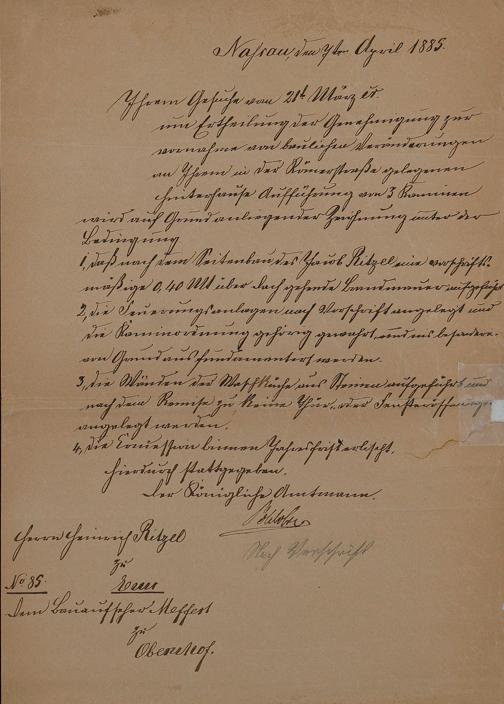 Nassau, den 7ten April 1885.
Ihrem Gesuche vom 21t März cr.
um Ertheilung der Genehmigung zur
vornahme von baulichen Veränderungen
an Ihrem in der Römerstraße gelegenen
Hinterhause Aufführung von 3 Kaminen
wird auf Grund anliegender Zeichnung unter der
Bedingung
1, daß nach dem Seitenbau des Jacob Ritzel eine vorschrifts-
mäßige 0,40 Mt über Dach gehende Brandmauer aufgeführt
2, die Feuerungsanlagen nach Vorschrift angelegt und
die Kaminordnung gehörig gewahrt, und insbesondere
von Grund aus fundamentirt werden.
3, die Wände der Waschküche aus Steinen aufgeführt und
nach dem Remise zu keine Thür- oder Fensteröffnungen
angelegt werden.
4, die Concession binnen Jahresfrist erlischt,
hierdurch stattgegeben.
Der Königliche Amtmann.
Nach Vorschrift
Herrn Heinrich Ritzel
zu
No 85.
Dem Bauaufseher Meffert
zu
Obernhof.